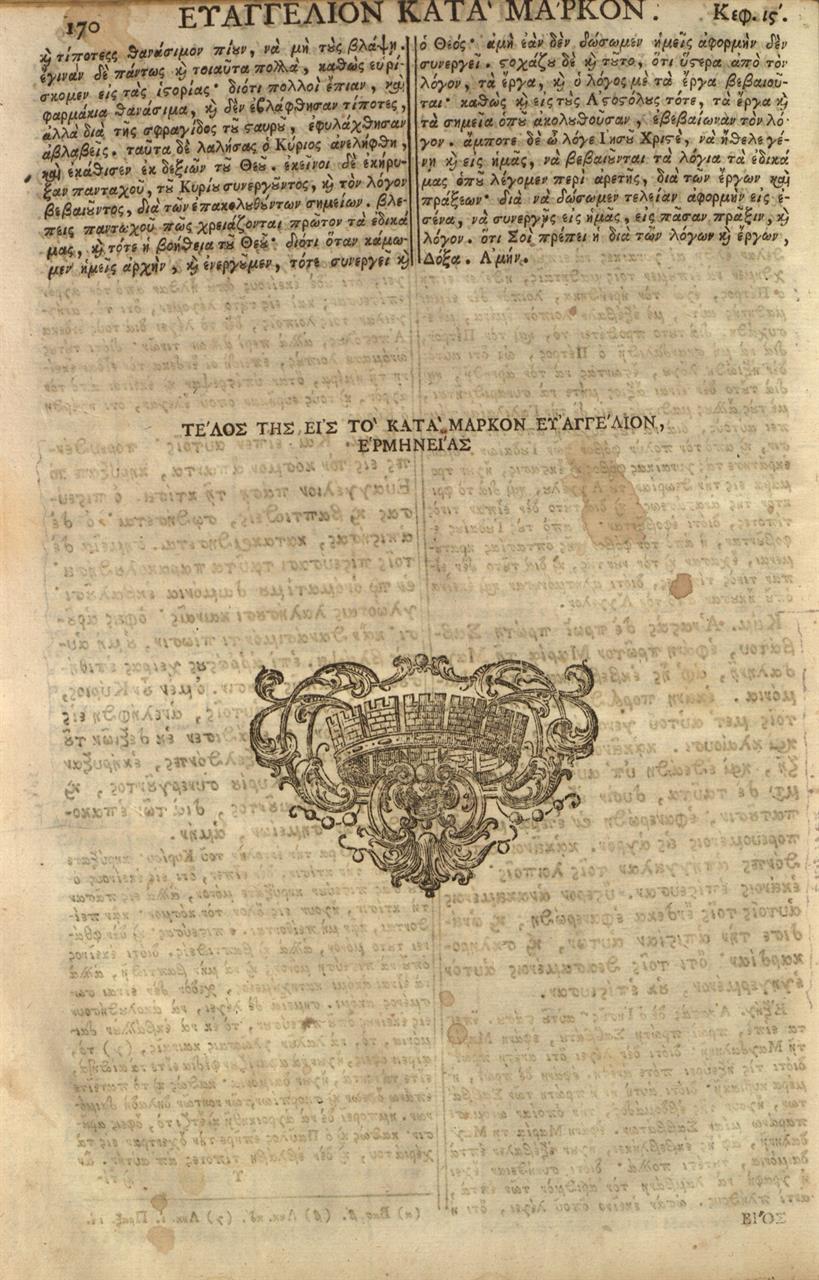 170
ΕΥΑΓΓΕΛΙΟΝ ΚΑΤΑ' ΜΑ'ΡΚΟΝ.
Κεφ. ις'.
ϗ τίποτες θανάσιμον πίουν, νὰ μὴ τοὺς βλάψῃ.
ἔγιναν δὲ πάντως ϗ τοιαῦτα πολλὰ, καθὼς εὑρί-
σκομεν εἰς τὰς ἱστορίας· διότι πολλοὶ ἔπιαν, ϗ
φαρμάκια θανάσιμα, ϗ δὲν ἐβλάφθησαν τίποτες,
ἀλλὰ διὰ τῆς σφραγίδος τοῦ σταυροῦ, ἐφυλάχθησαν
ἀβλαβεῖς. ταῦτα δὲ λαλήσας ὁ Κύριος ἀνελήφθη,
ϗ ἐκάθισεν ἐκ δεξιῶν τοῦ Θεοῦ. ἐκεῖνοι δὲ ἐκήρυ-
ξαν πανταχοῦ, τοῦ Κυρίου συνεργοῦντος, ϗ τὸν λόγον
βεβαιοῦντος, διὰ τῶν ἐπακολουθούντων σημείων. βλέ-
πεις παντάχου πῶς χρειάζονται πρῶτον τὰ ἐδικά
μας, ϗ τότε ἡ βοήθεια τοῦ Θεοῦ· διότι ὅταν κάμω-
μεν ἡμεῖς ἀρχὴν, ϗ ἐνεργοῦμεν, τότε συνεργεῖ ϗ
ὁ Θεός· ἀμὴ ἐὰν δὲν δώσωμεν ἡμεῖς ἀφορμὴν δὲν
συνεργεῖ. στοχάζου δὲ ϗ τοῦτο, ὅτι ὕστερα ἀπὸ τὸν
λόγον, τὰ ἔργα, ϗ ὁ λόγος μὲ τὰ ἔργα βεβαιοῦ-
ται· καθὼς ϗ εἰς τοὺς Ἀποστόλους τότε, τὰ ἔργα ϗ
τὰ σημεῖα ὁποῦ ἀκολουθοῦσαν, ἐβεβαίωναν τὸν λό-
γον. ἄμποτε δὲ ὦ λόγε Ἰησοῦ Χριστὲ, νὰ ἤθελε γέ-
νῃ ϗ εἰς ἡμᾶς, νὰ βεβαιοῦνται τὰ λόγια τὰ ἐδικά
μας ὁποῦ λέγομεν περὶ ἀρετῆς, διὰ τῶν ἔργων ϗ
πράξεων· διὰ νὰ δώσωμεν τελείαν ἀφορμὴν εἰς ἐ-
σένα, νὰ συνεργῇς εἰς ἡμᾶς, εἰς πᾶσαν πρᾶξιν, ϗ
λόγον. ὅτι Σοὶ πρέπει ἡ διὰ τῶν λόγων ϗ ἔργων,
Δόξα. Ἀμήν.
ΤΕ'ΛΟΣ ΤΗΣ ΕΙ'Σ ΤΟ' ΚΑΤΑ' ΜΑΡΚΟΝ ΕΥ'ΑΓΓΕ'ΛΙΟΝ,
Ε'ΡΜΗΝΕΙ'ΑΣ